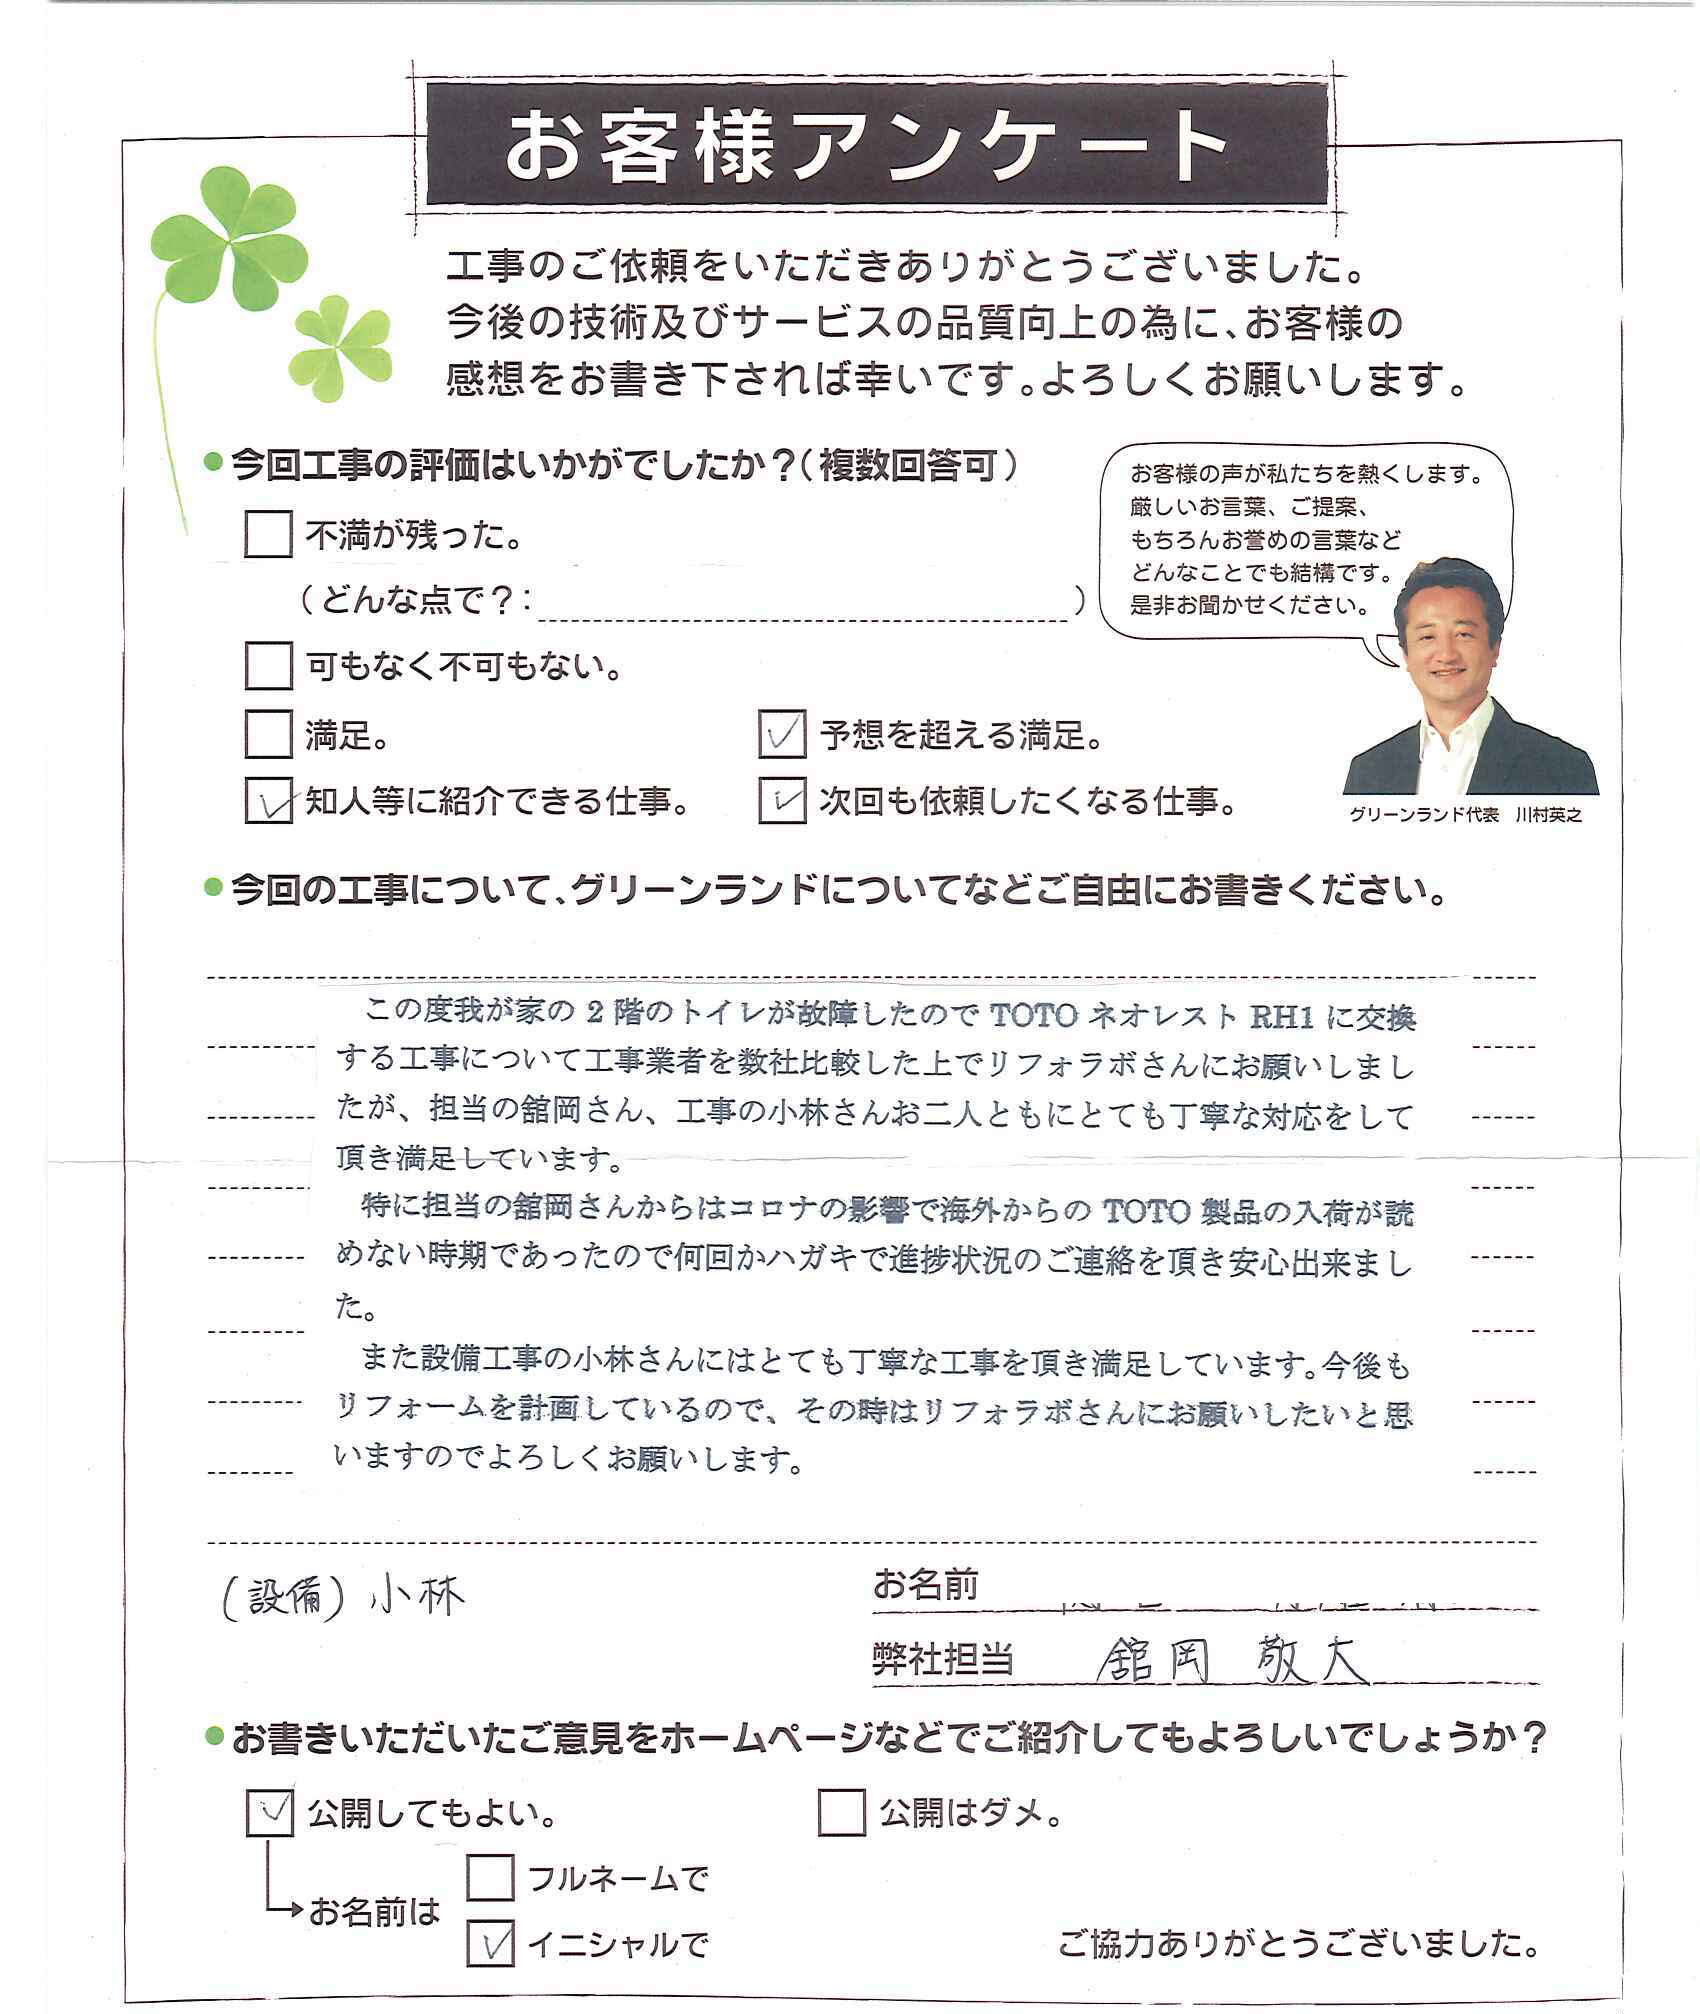 お客様アンケート
工事のご依頼をいただきありがとうございました。
今後の技術及びサービスの品質向上の為に、お客様の
感想をお書き下されば幸いです。よろしくお願いします。
●今回工事の評価はいかがでしたか？（複数回答可）
不満が残った。
（どんな点で？：　）
可もなく不可もない。
満足。
予想を超える満足。
知人等に紹介できる仕事。
次回も依頼したくなる仕事。
お客様の声が私たちを熱くします。
厳しいお言葉、ご提案、
もちろんお誉めの言葉など
どんなことでも結構です。
是非お聞かせください。
グリーンランド代表　川村英之
●今回の工事について、グリーンランドについてなどご自由にお書きください。
この度我が家の 2 階のトイレが故障したので TOTO ネオレスト RH1 に交換
する工事について工事業者を数社比較した上でリフォラボさんにお願いしまし
たが、担当の舘岡さん、工事の小林さんお二人ともにとても丁寧な対応をして
頂き満足しています。
特に担当の舘岡さんからはコロナの影響で海外からの TOTO 製品の入荷が読
めない時期であったので何回かハガキで進捗状況のご連絡を頂き安心出来まし
た。
また設備工事の小林さんにはとても丁寧な工事を頂き満足しています。今後も
リフォームを計画しているので、その時はリフォラボさんにお願いしたいと思
いますのでよろしくお願いします。
（設備）小林
お名前
弊社担当　舘岡　敬大
●お書きいただいたご意見をホームページなどでご紹介してもよろしいでしょうか？
公開してもよい。
公開はダメ。
お名前は
フルネームで
イニシャルで
ご協力ありがとうございました。